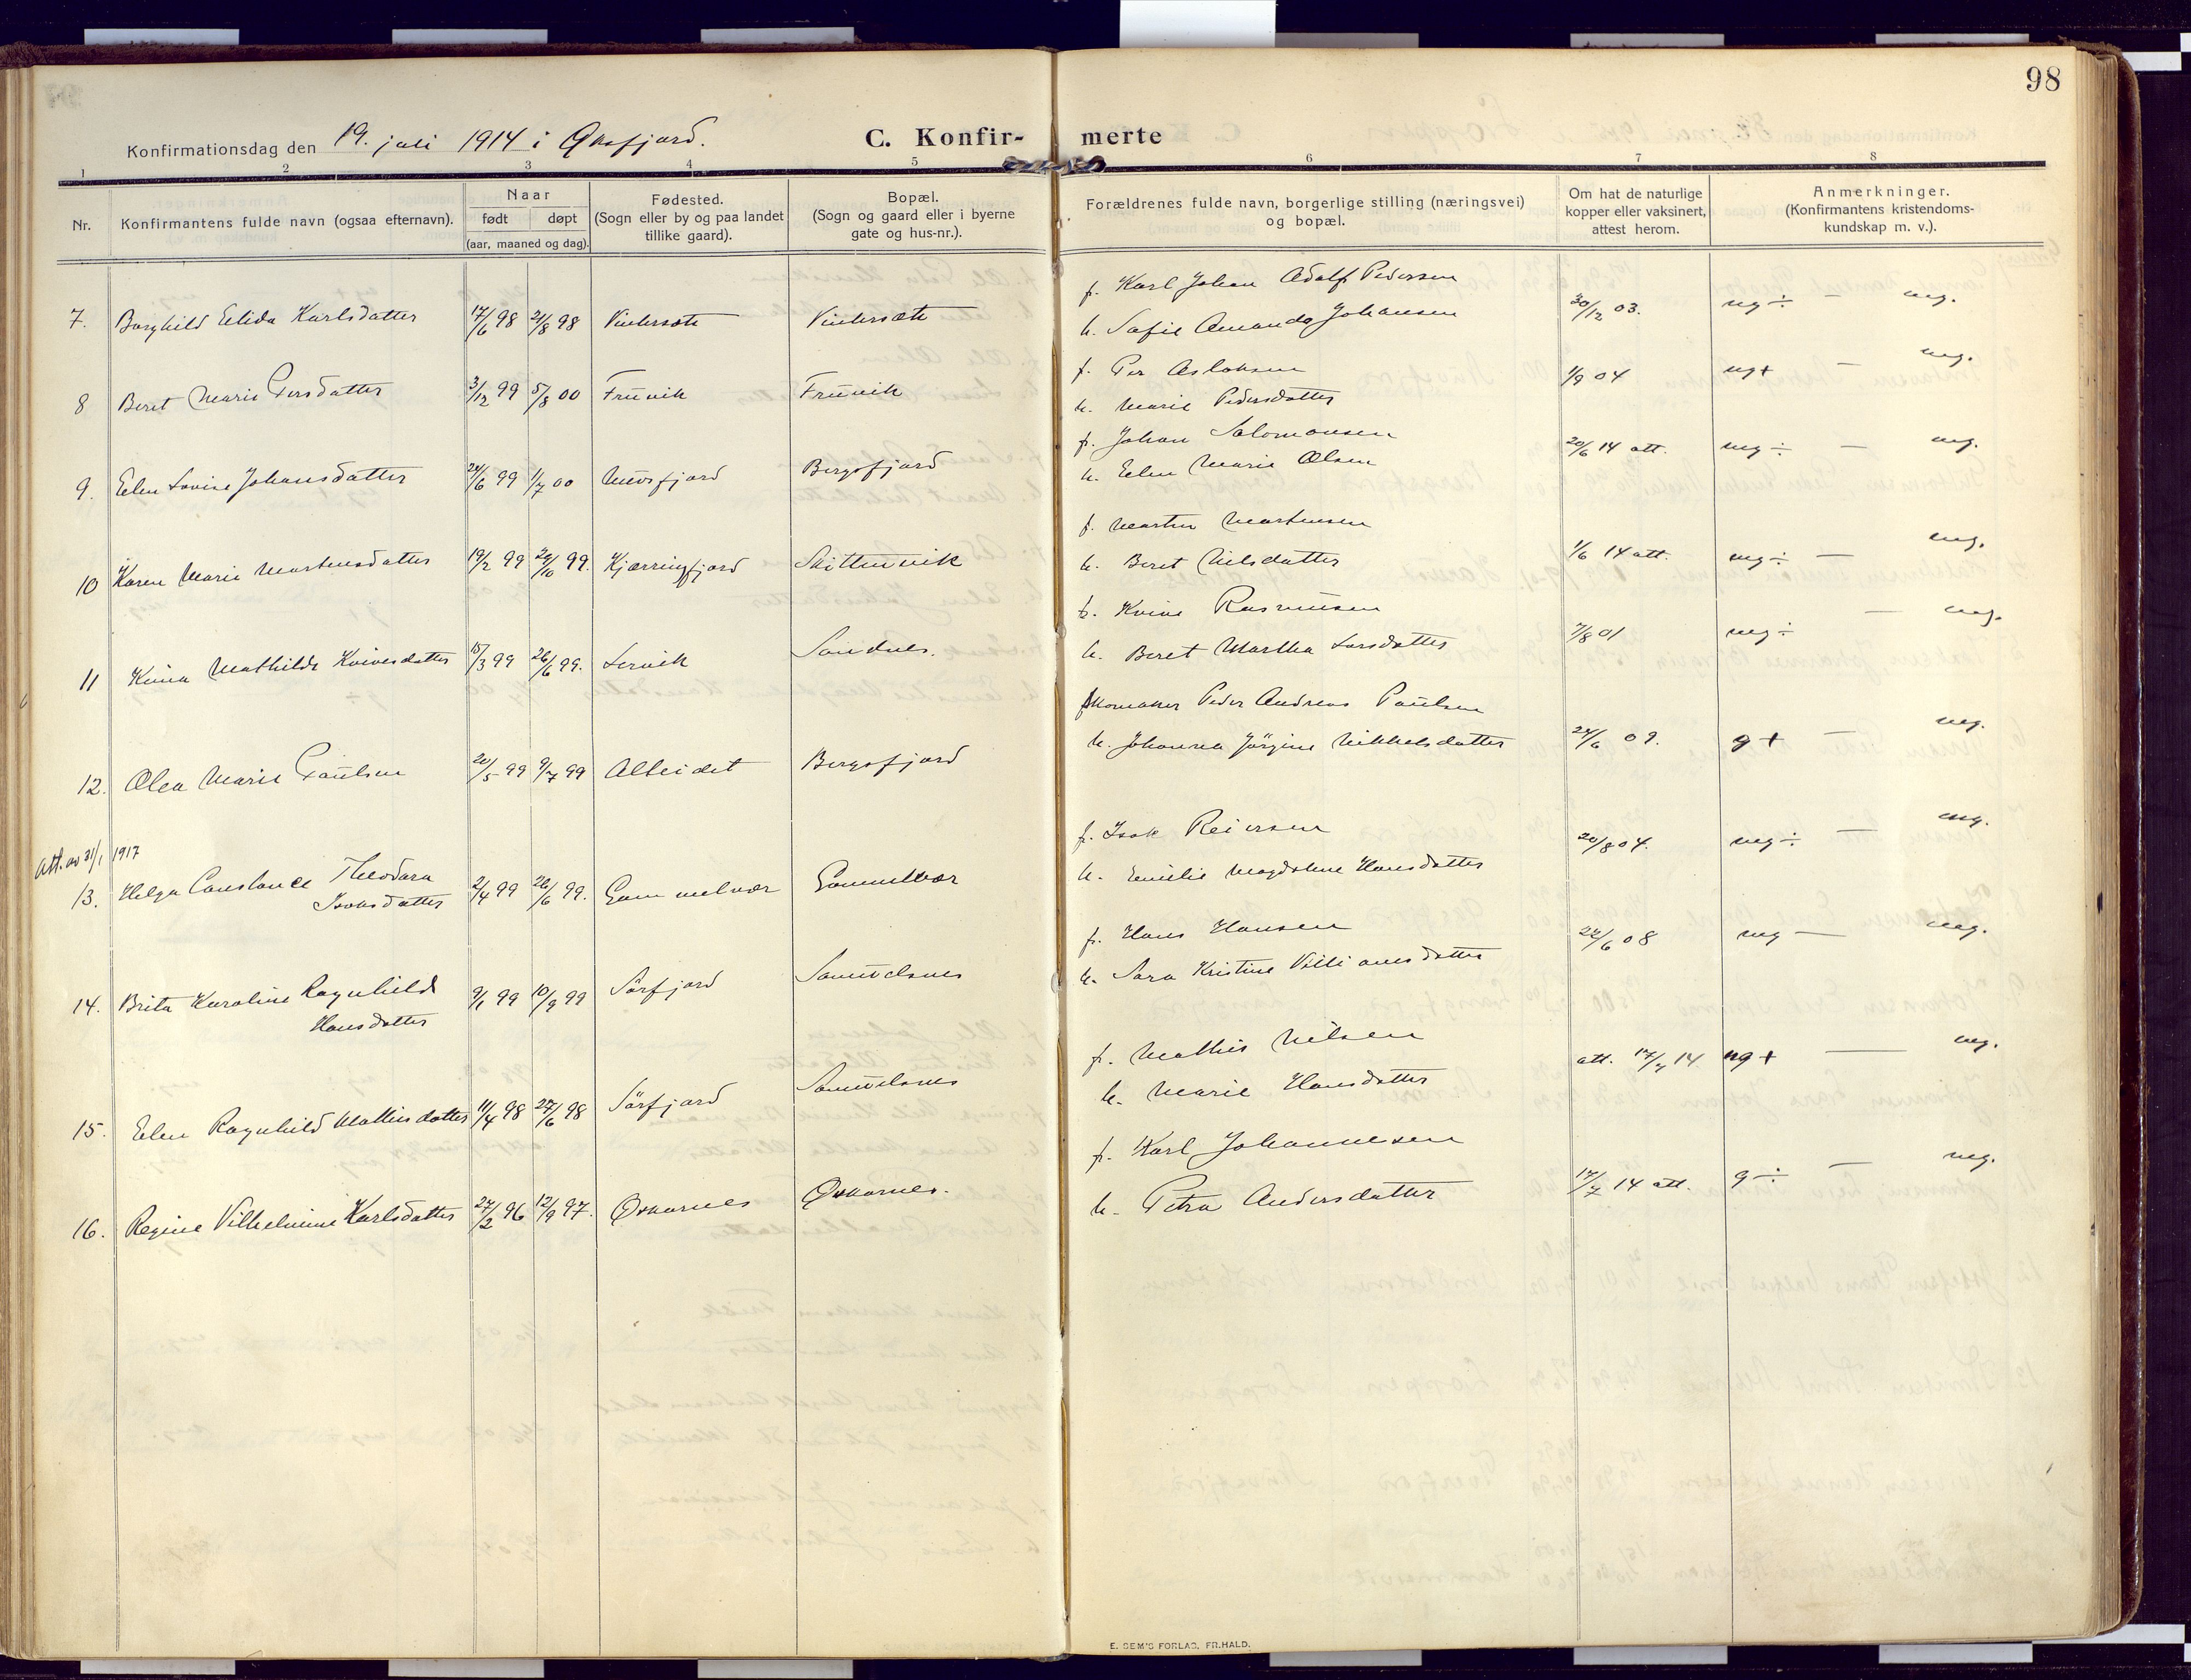 98
Konfirmationsdag den 19. juli 1914 i Øksfjord.
C. Konfir-merte
1 2 3 4 5 6 7 8
Nr.
Konfirmantens fulde navn (ogsaa efternavn).
Naar
født døpt
(aar, maaned og dag).
Fødested.
(Sogn eller by og paa landet
tillike gaard).
Bopæl.
(Sogn og gaard eller i byerne
gate og hus-nr.).
Forældrenes fulde navn, borgerlige stilling (næringsvei)
og bopæl.
Om hat de naturlige
kopper eller vaksinert,
attest herom.
Anmerkninger.
(Konfirmantens kristendoms-
kundskap m. v.).
f. Karl Johan Adolf Pedersen
7. Borghild Elida Karlsdatter 17/6 98 21/8 98 Vintersæt Vintersæt
h. Sofie Amanda Johansen 30/12 03. mg ÷ — mg.
f. Per Aslaksen
8 Beret Marie Persdatter 3/12 99 5/8 00 Fruvik Fruvik
h. Marie Pedersdatter 1/9 04 mg+ — mg.
f. Johan Salomonsen
9. Elen Lovise Johansdatter 24/6 99 1/7 00 Nuvsfjord Bergsfjord
h. Elen Marie Olsen 20/6 14 att. mg ÷ — mg.
f. Martin Martinsen
10 Karen Marie Martinsdatter 19/2 99 29/10 99. Kjærringfjord Skittenvik
h. Beret Nilsdatter 1/6 14 att. mg ÷ — mg.
f. Kvive Rasmusen
11 Kvina Mathilde Kvivesdatter 15/3 99 26/6 99. Lervik Sandnes.
h. Beret Martha Larsdatter 7/8 01 mg ÷ — mg.
f. skomaker Peder Andreas Paulsen
12. Olea Marie Paulsen 20/5 99 9/7 99 Alteidet Bergsfjord
h. Johanna Jörgine Mikkelsdatter 24/6 09. g + — mg.
att. av 31/1 1917
f. Isak Reiersen
13. Helga Constance Theodora
Isaksdatter 2/4 99 26/6 99. Gammelvær Gammelvær
h. Emilie Magdalene Hansdatter 20/8 04. mg ÷ — mg.
f. Hans Hansen
14. Brita Karoline Ragnhild
Hansdatter 9/1 99 10/9 99 Sörfjord Samuelsnes
h. Sara Kristine Villiamsdatter 22/6 08 mg — mg.
f. Mathis Nilsen
15. Elen Ragnhild Mathisdatter 11/4 98 27/6 98 Sörfjord Samuelsnes
h. Marie Hansdatter att. 17/7 14 mg + — mg.
f. Karl Johannesen
16. Regine Vilhelmine Karlsdatter 27/2 96 12/9 97. Øskarnes Øskarnes.
h. Petra Andersdatter 17/7 14 att. g ÷ — mg.
E. SEM'S FORLAG, FR.HALD.